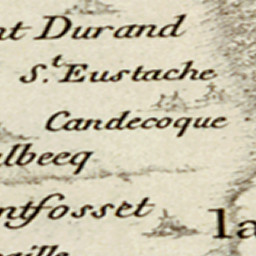 nt Durand
S.t Eustache
Candecoque
lbeeq
ntfosset
la
aille